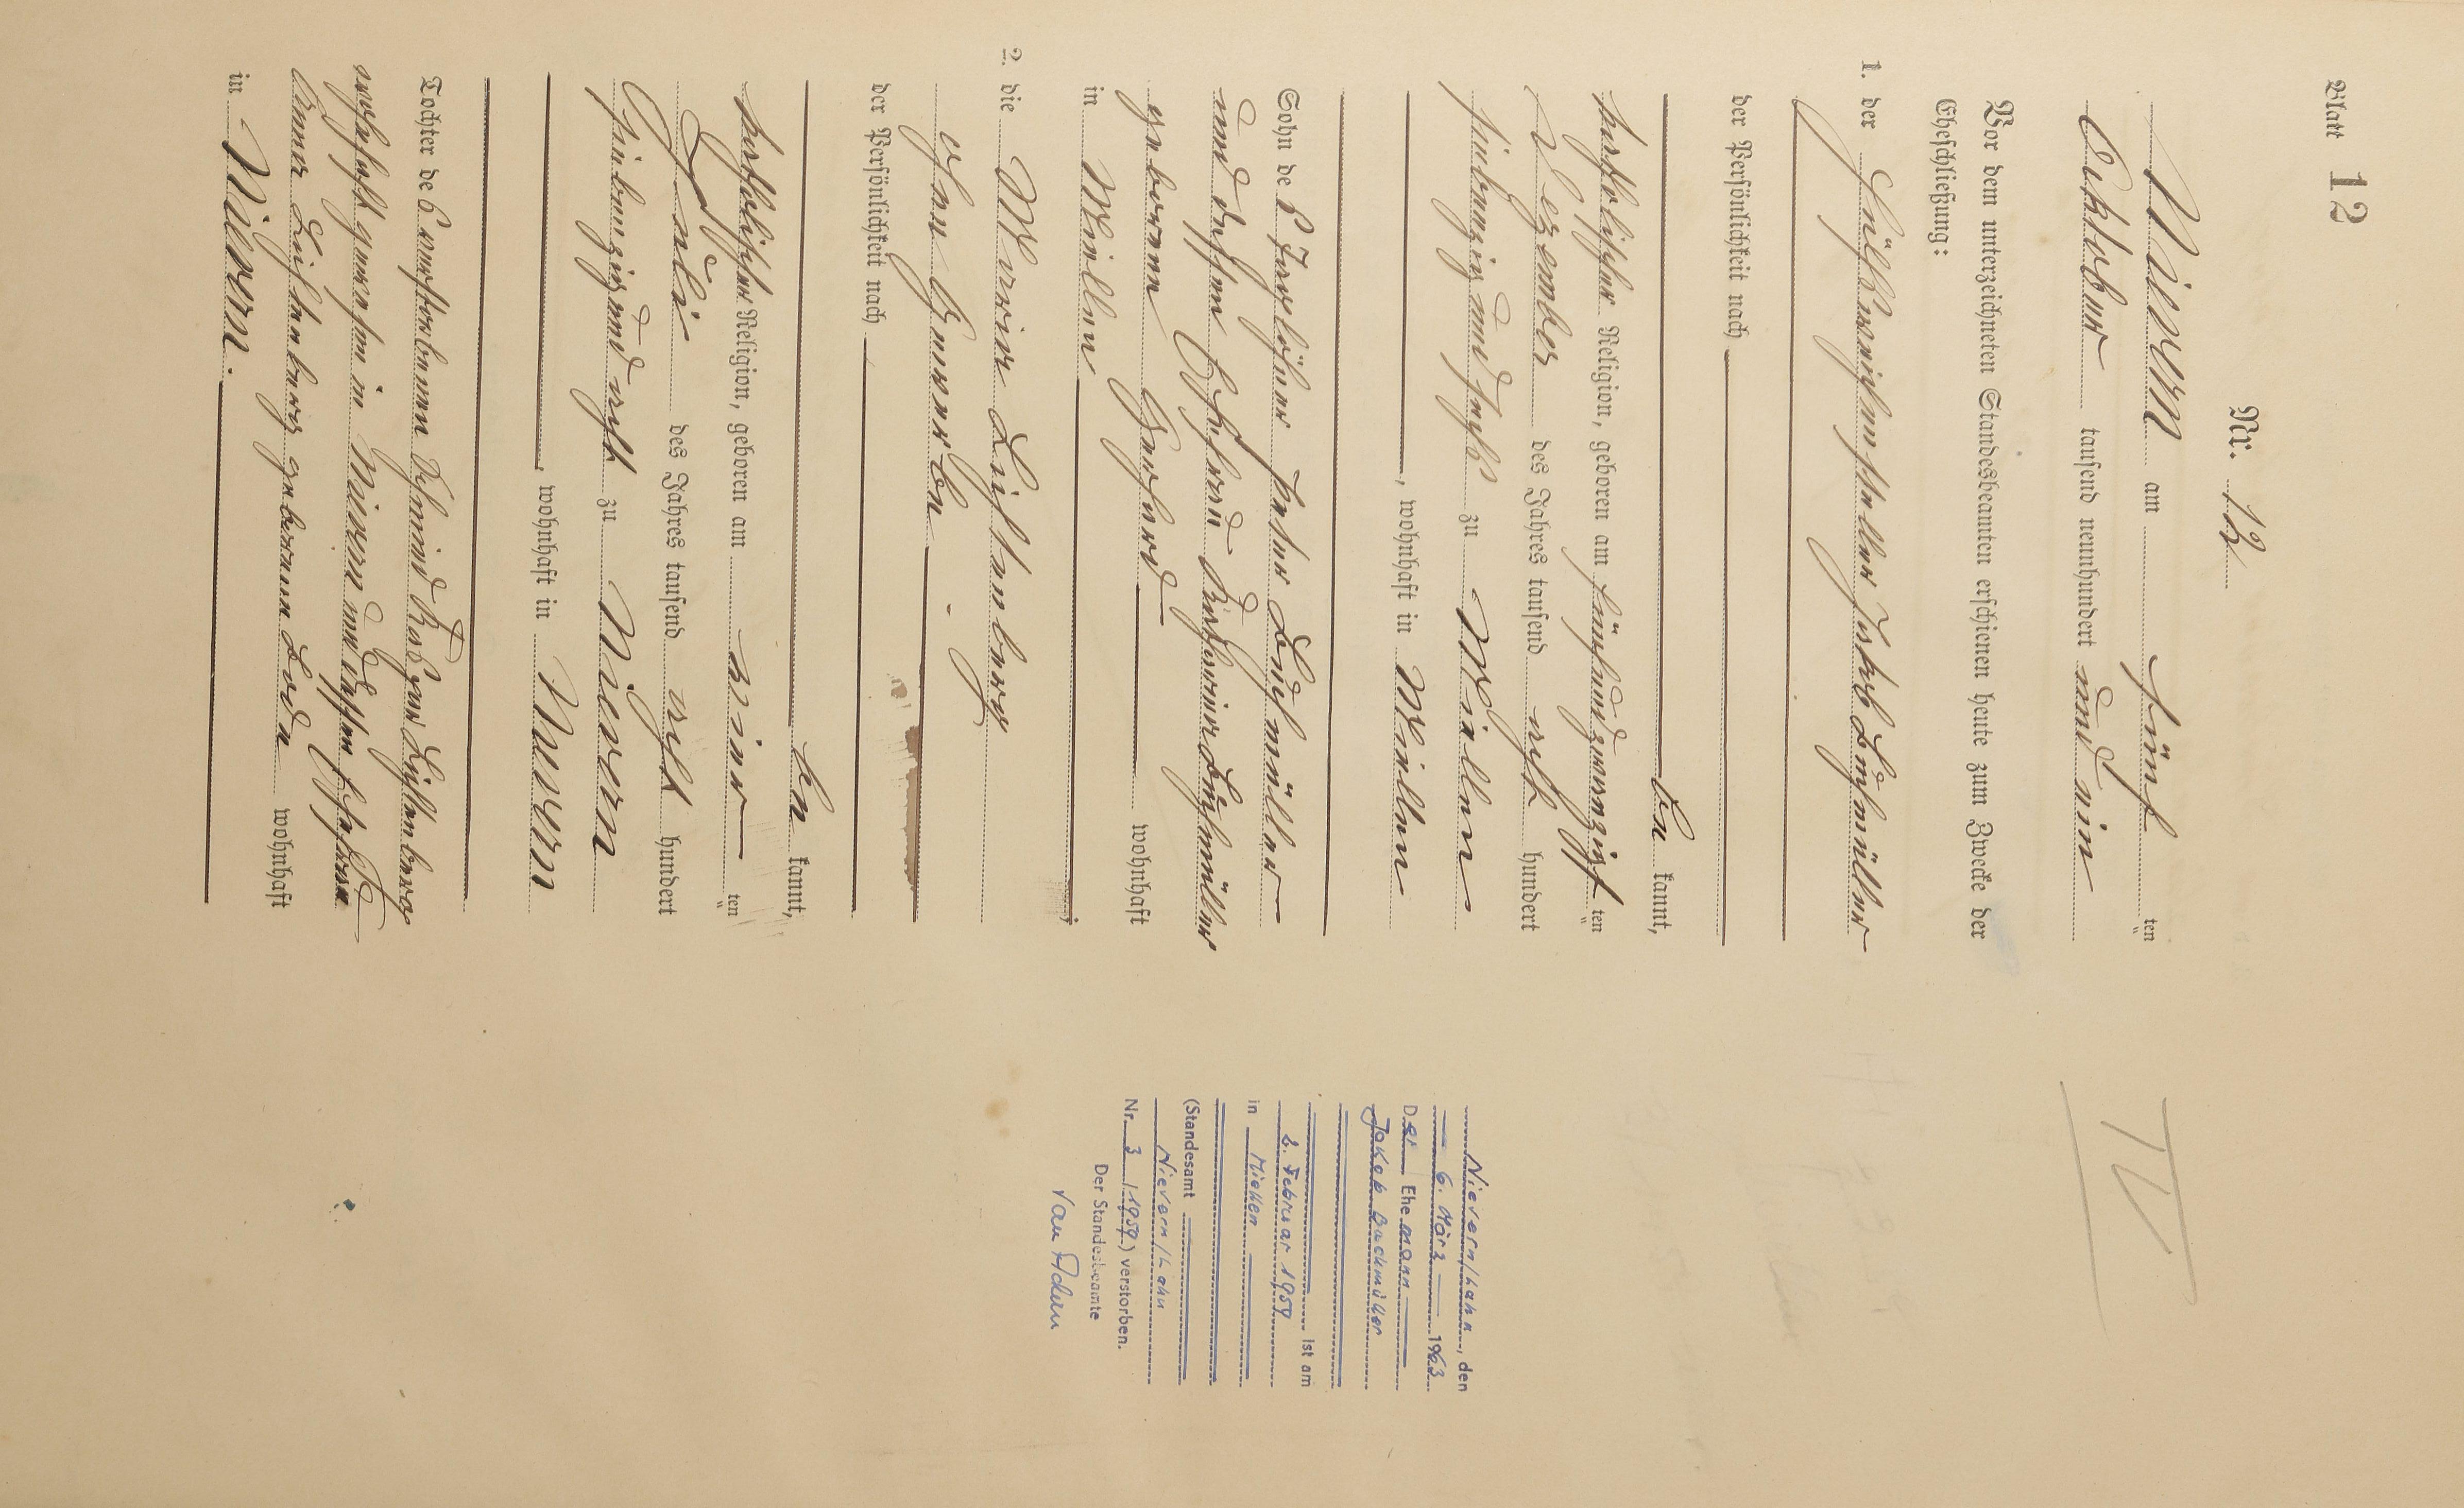 Blatt 12
Nr. 12.
Nievern am fünf ten
Oktober tausend neunhundert und ein
Vor dem unterzeichneten Standesbeamten erschienen heute zum Zwecke der
Eheschließung:
1. der Jakob Bachmüller
der Persönlichkeit nach
be kannt,
katholischer Religion, geboren am fünfundzwanzigsten
Dezember des Jahres tausend acht hundert
siebenzig und sechs zu Miellen
, wohnhaft in Miellen
Sohn des Tagelöhner Peter Bachmüller
und dessen Ehefrau Bachmüller
geborene wohnhaft
in Miellen ;
2. die Maria Leistenberg
ohne Gewerbe. -
der Persönlichkeit nach
be kannt,
katholischer Religion, geboren am vier ten
Juli des Jahres tausend acht hundert
siebenzig und acht zu Nievern
, wohnhaft in Nievern
Tochter des verstorbenen Schmied Kaspar Leistenberg
wohnhaft gewesen in Nievern und dessen Ehefrau
Leistenberg geborenen wohnhaft
in Nievern.
IV
Nievern/Lahn, den
6. März 1963
Der Ehemann
Jakob Bachmüller
ist am
2. Februar 1959
in Miellen
(Standesamt
Nievern/Lahn
Nr. 3 / 1959) verstorben.
Der Standesbeamte